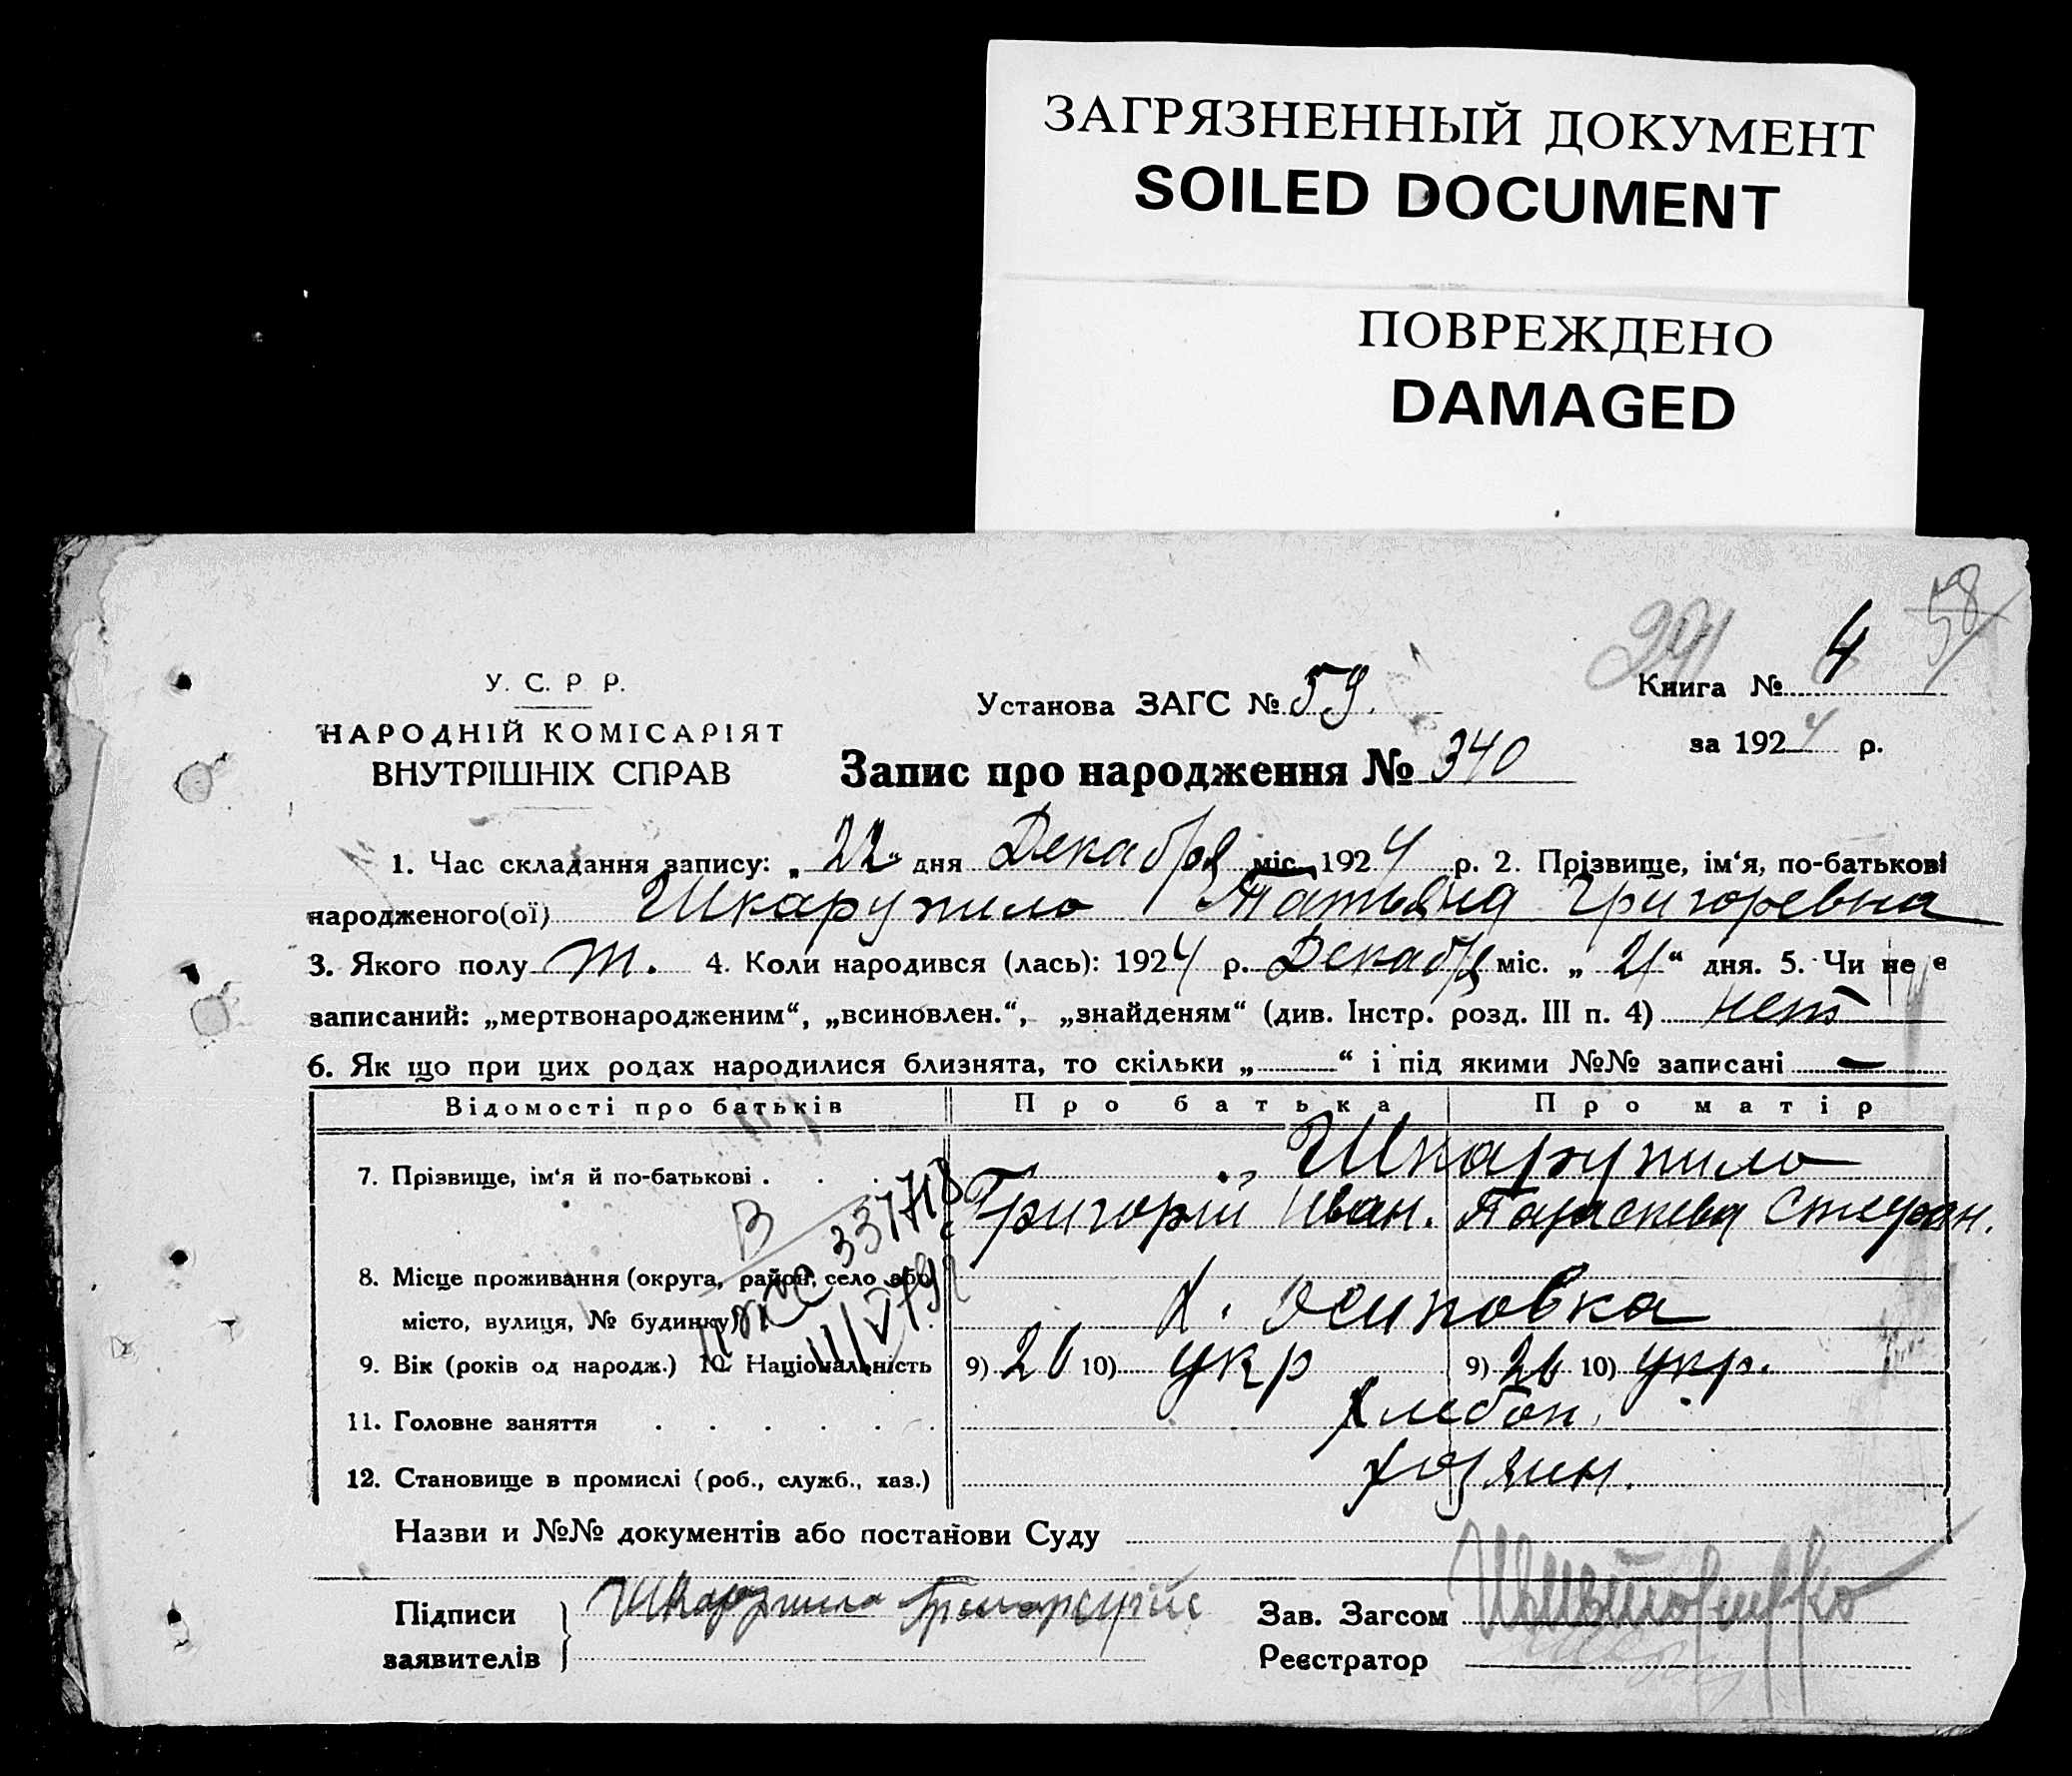 ЗАГРЯЗНЕННЫЙ ДОКУМЕНТ
SOILED DOCUMENT
ПОВРЕЖДЕНО
DAMAGED
58
291
У. С. Р Р.
НАРОДНІЙ КОМІСАРІЯТ
ВНУТРІШНІХ СПРАВ
Установа ЗАГС № 59.
Книга № 4
за 1924 р.
Запис про народження № 340
1. Час складання запису: „22“ дня Декабря міс. 1924 р. 2. Прізвище, ім‘я, по-батькові
народженого(ої) Шкарупило Татьяна Григоревна
3. Якого полу ж. 4. Коли народився (лась): 1924 р. Декабря міс. „21“ дня. 5. Чи не є
записаний: „мертвонародженим“, „всиновлен.“, „знайденям“ (див. Інстр. розд. III п. 4) нет
6. Як що при цих родах народилися близнята, то скільки „ “ і під якими №№ записані —
Відомості про батьків Про батька Про матір
7. Прізвище, ім‘я й по-батькові . . . Шкарупило
Григорій Иван. Параскева Стефан.
8. Місце проживання (округа, район, село або
місто, вулиця, № будинку) х. Осиповка
9. Вік (років од народж.) 10. Національність 9) 26 10) укр 9) 26 10) укр.
11. Головне заняття . . . . . . Хлебоп.
12. Становище в промислі (роб., служб., хаз.) хозяин.
Назви и №№ документів або постанови Суду
Підписи
заявителів
Шкарупило
Зав. Загсом
Реєстратор